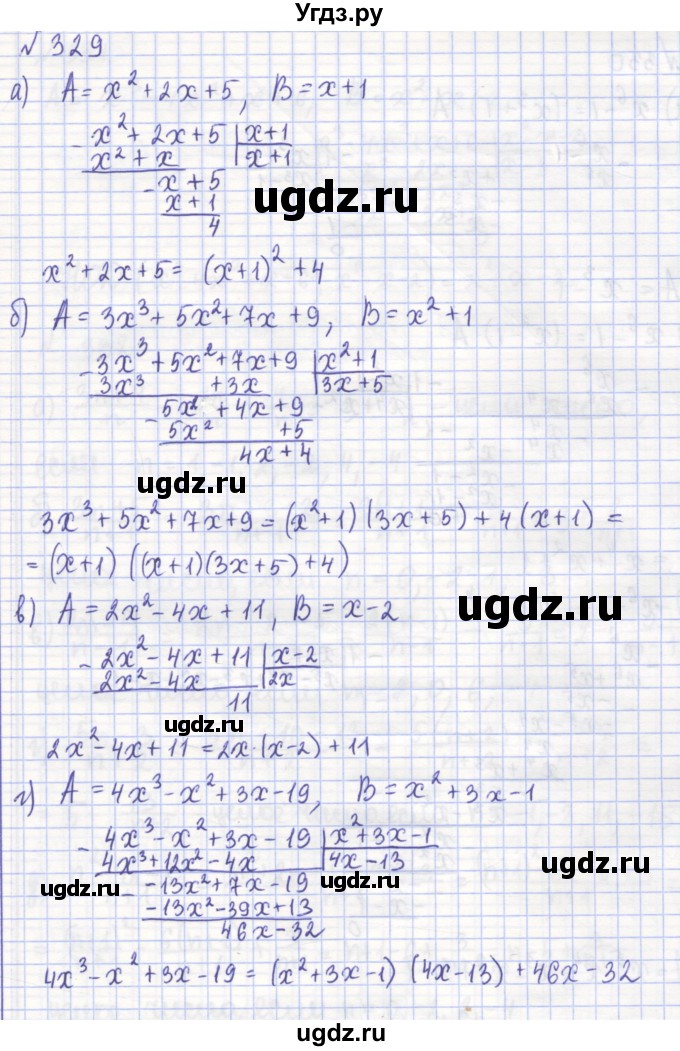 Угдз.ру
№ 329
а) A = x² + 2x + 5, B = x + 1
- x² + 2x + 5 | x + 1
x² + x | x + 1
- x + 5
x + 1
ugdz.ru
4
x² + 2x + 5 = (x + 1)² + 4
б) A = 3x³ + 5x² + 7x + 9, B = x² + 1
- 3x³ + 5x² + 7x + 9 | x² + 1
3x³ + 3x | 3x + 5
- 5x² + 4x + 9
5x² + 5
4x + 4
ugdz.ru
ugdz.ru
3x³ + 5x² + 7x + 9 = (x² + 1) (3x + 5) + 4 (x + 1) =
= (x + 1) ((x + 1)(3x + 5) + 4)
в) A = 2x² - 4x + 11, B = x - 2
ugdz.ru
- 2x² - 4x + 11 | x - 2
2x² - 4x | 2x
11
ugdz.ru
2x² - 4x + 11 = 2x·(x - 2) + 11
г) A = 4x³ - x² + 3x - 19, B = x² + 3x - 1
- 4x³ - x² + 3x - 19 | x² + 3x - 1
4x³ + 12x² - 4x | 4x - 13
ugdz.ru
ugdz.ru
ugdz.ru
- -13x² + 7x - 19
-13x² - 39x + 13
46x - 32
4x³ - x² + 3x - 19 = (x² + 3x - 1) (4x - 13) + 46x - 32
ugdz.ru